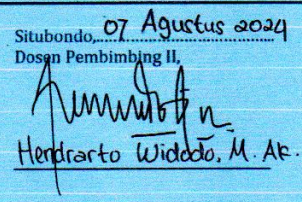 Situbondo, 07 Agustus 2024
Dosen Pembimbing II,
Hendrarto Widodo, M. Ak.